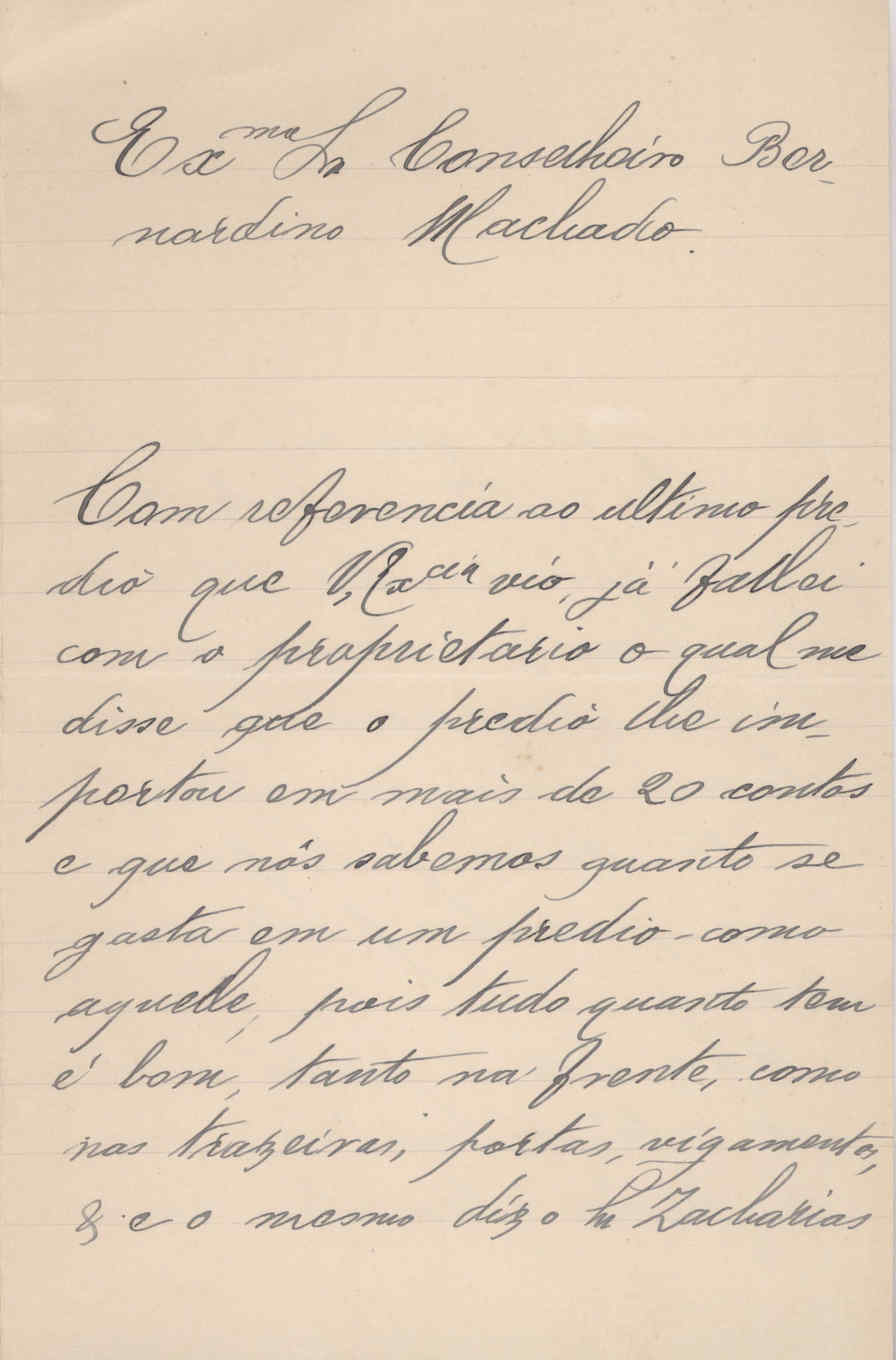 Ex.mo Sr Conselheiro Ber-
nardino Machado.
Com referencia ao ultimo pre-
dio que V. Excia vio, já fallei
com o proprietario o qual me
disse que o predio lhe im-
portou em mais de 20 contos
e que nós sabemos quanto se
gasta em um predio como
aquelle, pois tudo quanto tem
é bom, tanto na frente, como
nas trazeiras, portas, vigamentos,
& e o mesmo diz o Sr Zacharias